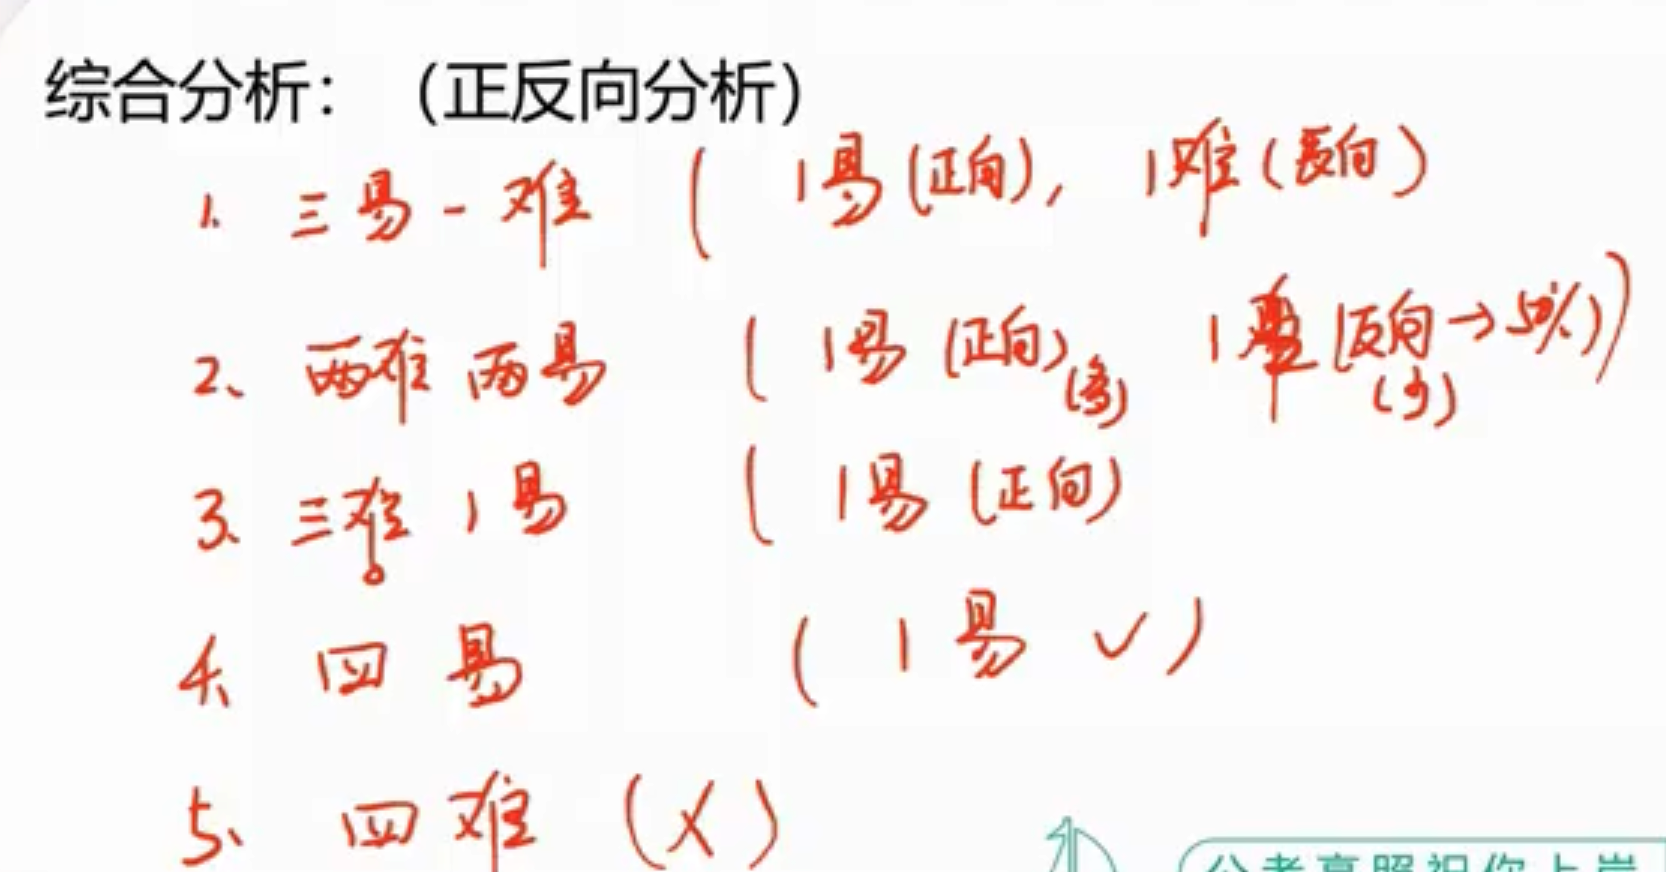 综合分析：（正反向分析）
1. 三易一难 ( 1易(正向), 1难(反向)
2、两难两易 ( 1易(正向)(多) 1难(反向→50%)(少))
3、三难1易 ( 1易(正向)
4、四易 ( 1易 ✓ )
5、四难 (X)
公考高照祝你上岸